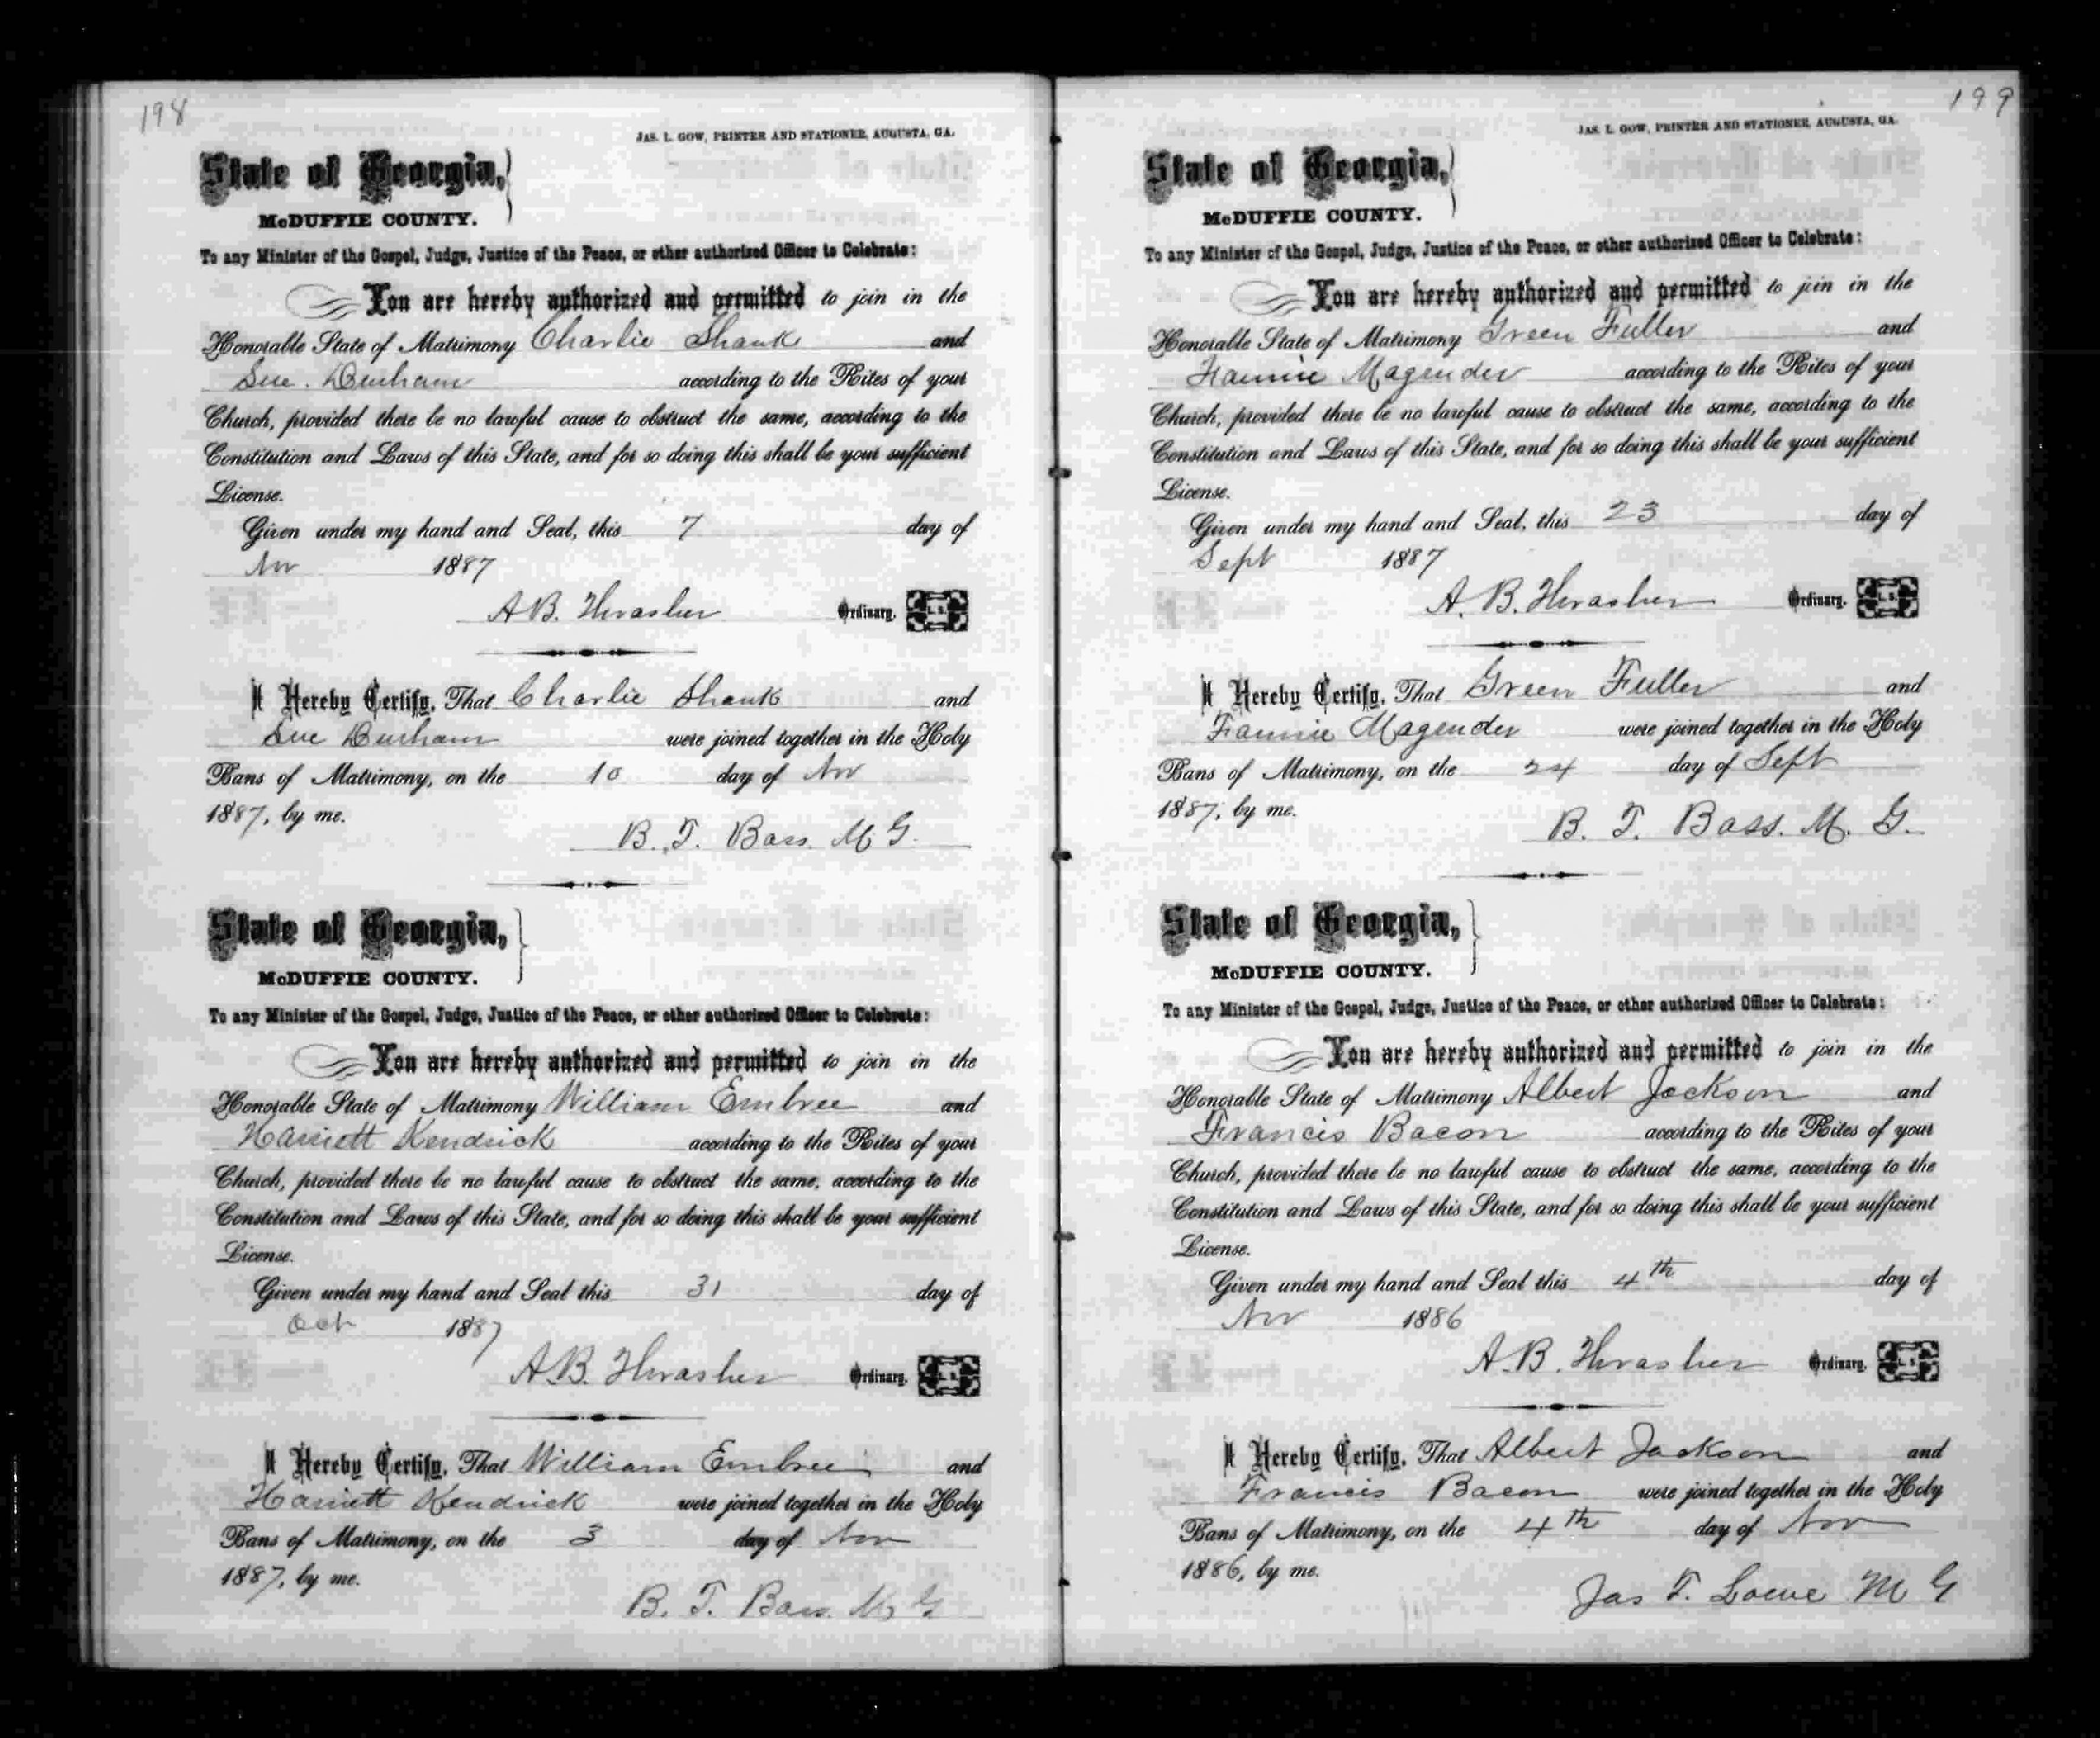 198
JAS. L. GOW, PRINTER AND STATIONER, AUGUSTA, GA.
State of Georgia,
McDUFFIE COUNTY.
To any Minister of the Gospel, Judge, Justice of the Peace, or other authorized Officer to Celebrate:
You are hereby authorized and permitted to join in the
Honorable State of Matrimony Charlie Shank and
Sue. Durham according to the Rites of your
Church, provided there be no lawful cause to obstruct the same, according to the
Constitution and Laws of this State, and for so doing this shall be your sufficient
License.
Given under my hand and Seal, this 7 day of
Nov 1887
A.B. Thrasher Ordinary. L.S.
I Hereby Certify, That Charlie Shank and
Sue Durham were joined together in the Holy
Bans of Matrimony, on the 10 day of Nov
1887, by me.
B. T. Bass. M G.
State of Georgia,
McDUFFIE COUNTY.
To any Minister of the Gospel, Judge, Justice of the Peace, or other authorized Officer to Celebrate:
You are hereby authorized and permitted to join in the
Honorable State of Matrimony William Embree and
Harriett Kendrick according to the Rites of your
Church, provided there be no lawful cause to obstruct the same, according to the
Constitution and Laws of this State, and for so doing this shall be your sufficient
License.
Given under my hand and Seal this 31 day of
Oct 1887
A.B. Thrasher Ordinary. L.S.
I Hereby Certify, That William Embree and
Harriett Kendrick were joined together in the Holy
Bans of Matrimony, on the 3 day of Nov
1887, by me.
B. T. Bass. M G
199
JAS. L. GOW, PRINTER AND STATIONER, AUGUSTA, GA.
State of Georgia,
McDUFFIE COUNTY.
To any Minister of the Gospel, Judge, Justice of the Peace, or other authorized Officer to Celebrate:
You are hereby authorized and permitted to join in the
Honorable State of Matrimony Green Fuller and
Fannie Magender according to the Rites of your
Church, provided there be no lawful cause to obstruct the same, according to the
Constitution and Laws of this State, and for so doing this shall be your sufficient
License.
Given under my hand and Seal, this 23 day of
Sept 1887
A. B. Thrasher Ordinary. L.S.
I Hereby Certify, That Green Fuller and
Fannie Magender were joined together in the Holy
Bans of Matrimony, on the 24 day of Sept
1887, by me.
B. T. Bass. M. G.
State of Georgia,
McDUFFIE COUNTY.
To any Minister of the Gospel, Judge, Justice of the Peace, or other authorized Officer to Celebrate:
You are hereby authorized and permitted to join in the
Honorable State of Matrimony Albert Jackson and
Francis Bacon according to the Rites of your
Church, provided there be no lawful cause to obstruct the same, according to the
Constitution and Laws of this State, and for so doing this shall be your sufficient
License.
Given under my hand and Seal this 4th day of
Nov 1886
A.B. Thrasher Ordinary. L.S.
I Hereby Certify, That Albert Jackson and
Francis Bacon were joined together in the Holy
Bans of Matrimony, on the 4th day of Nov
1886, by me.
Jas T. Lowe M G